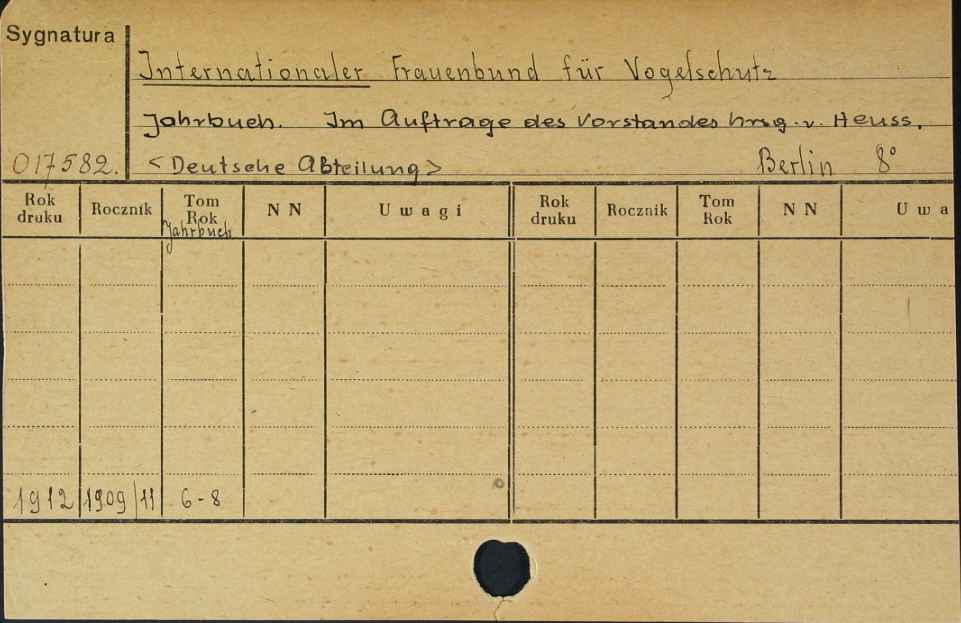 Sygnatura
Internationaler Frauenbund für Vogelschutz
Jahrbuch. Im Auftrage des Vorstandes hrsg. v. Heuss.
017582. <Deutsche Abteilung> Berlin 8°
Rok druku Rocznik Tom Rok Jahrbuch N N Uwagi Rok druku Rocznik Tom Rok N N Uwa
1912 1909/11 6-8